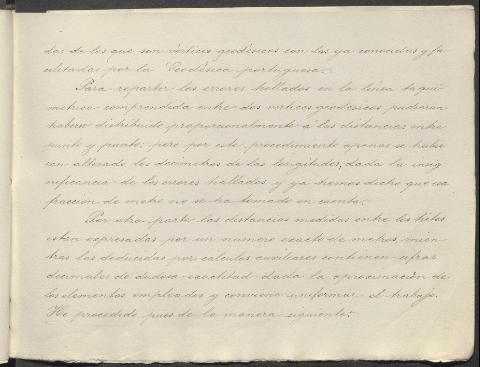 das de los que son vértices geodésicos con las ya conocidas y fa
cilitadas por la Geodésica portuguesa.
Para repartir los errores hallados en la línea taqui
métrica comprendida entre dos vértices geodésicos pudieran
haberse distribuido proporcionalmente á las distancias entre
punto y punto; pero por este procedimiento apenas se hubie
ran alterado los decímetros de las longitudes, dada la insig
nificancia de los errores hallados y ya hemos dicho que esa
fracción de metro no se ha tomado en cuenta.
Por otra parte las distancias medidas entre los hitos
están expresadas por un número exacto de metros, mien
tras las deducidas por cálculos auxiliares contienen cifras
decimales de dudosa exactitud dada la aproximación de
los elementos empleados y conviene uniformar el trabajo.
He procedido pues de la manera siguiente: